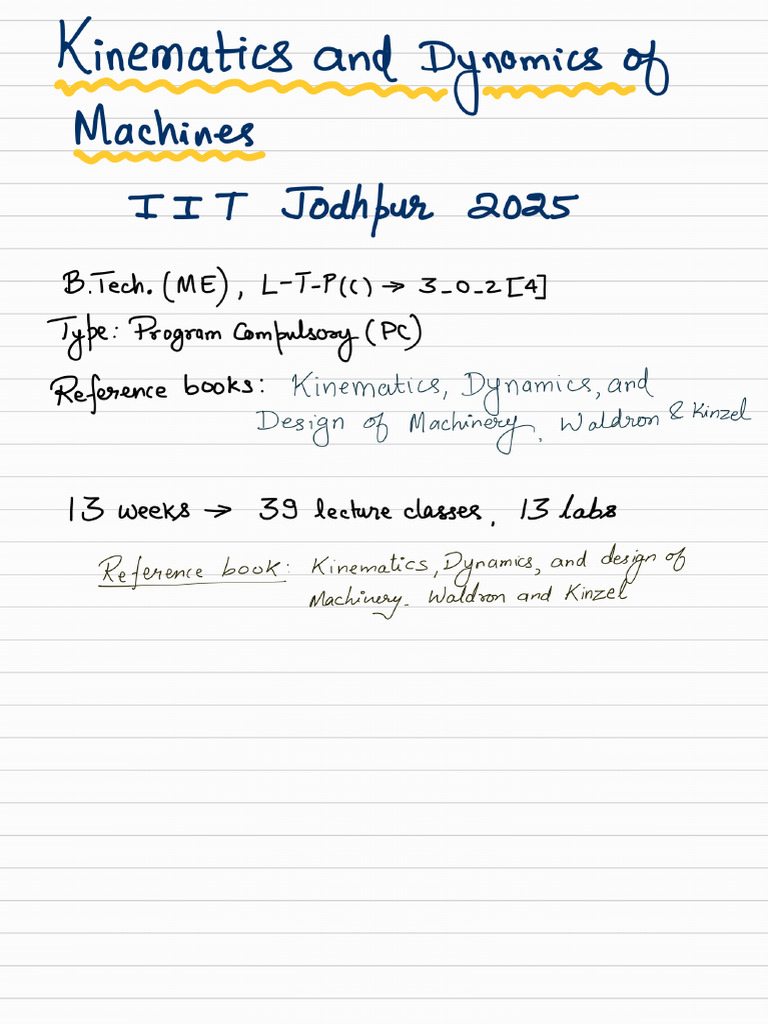 Kinematics and Dynamics of
Machines
IIT Jodhpur 2025
B.Tech. (ME), L-T-P(C) → 3-0-2 [4]
Type: Program Compulsory (PC)
Reference books: Kinematics, Dynamics, and
Design of Machinery, Waldron & Kinzel
13 weeks → 39 lecture classes, 13 labs
Reference book: Kinematics, Dynamics, and design of
Machinery. Waldron and Kinzel